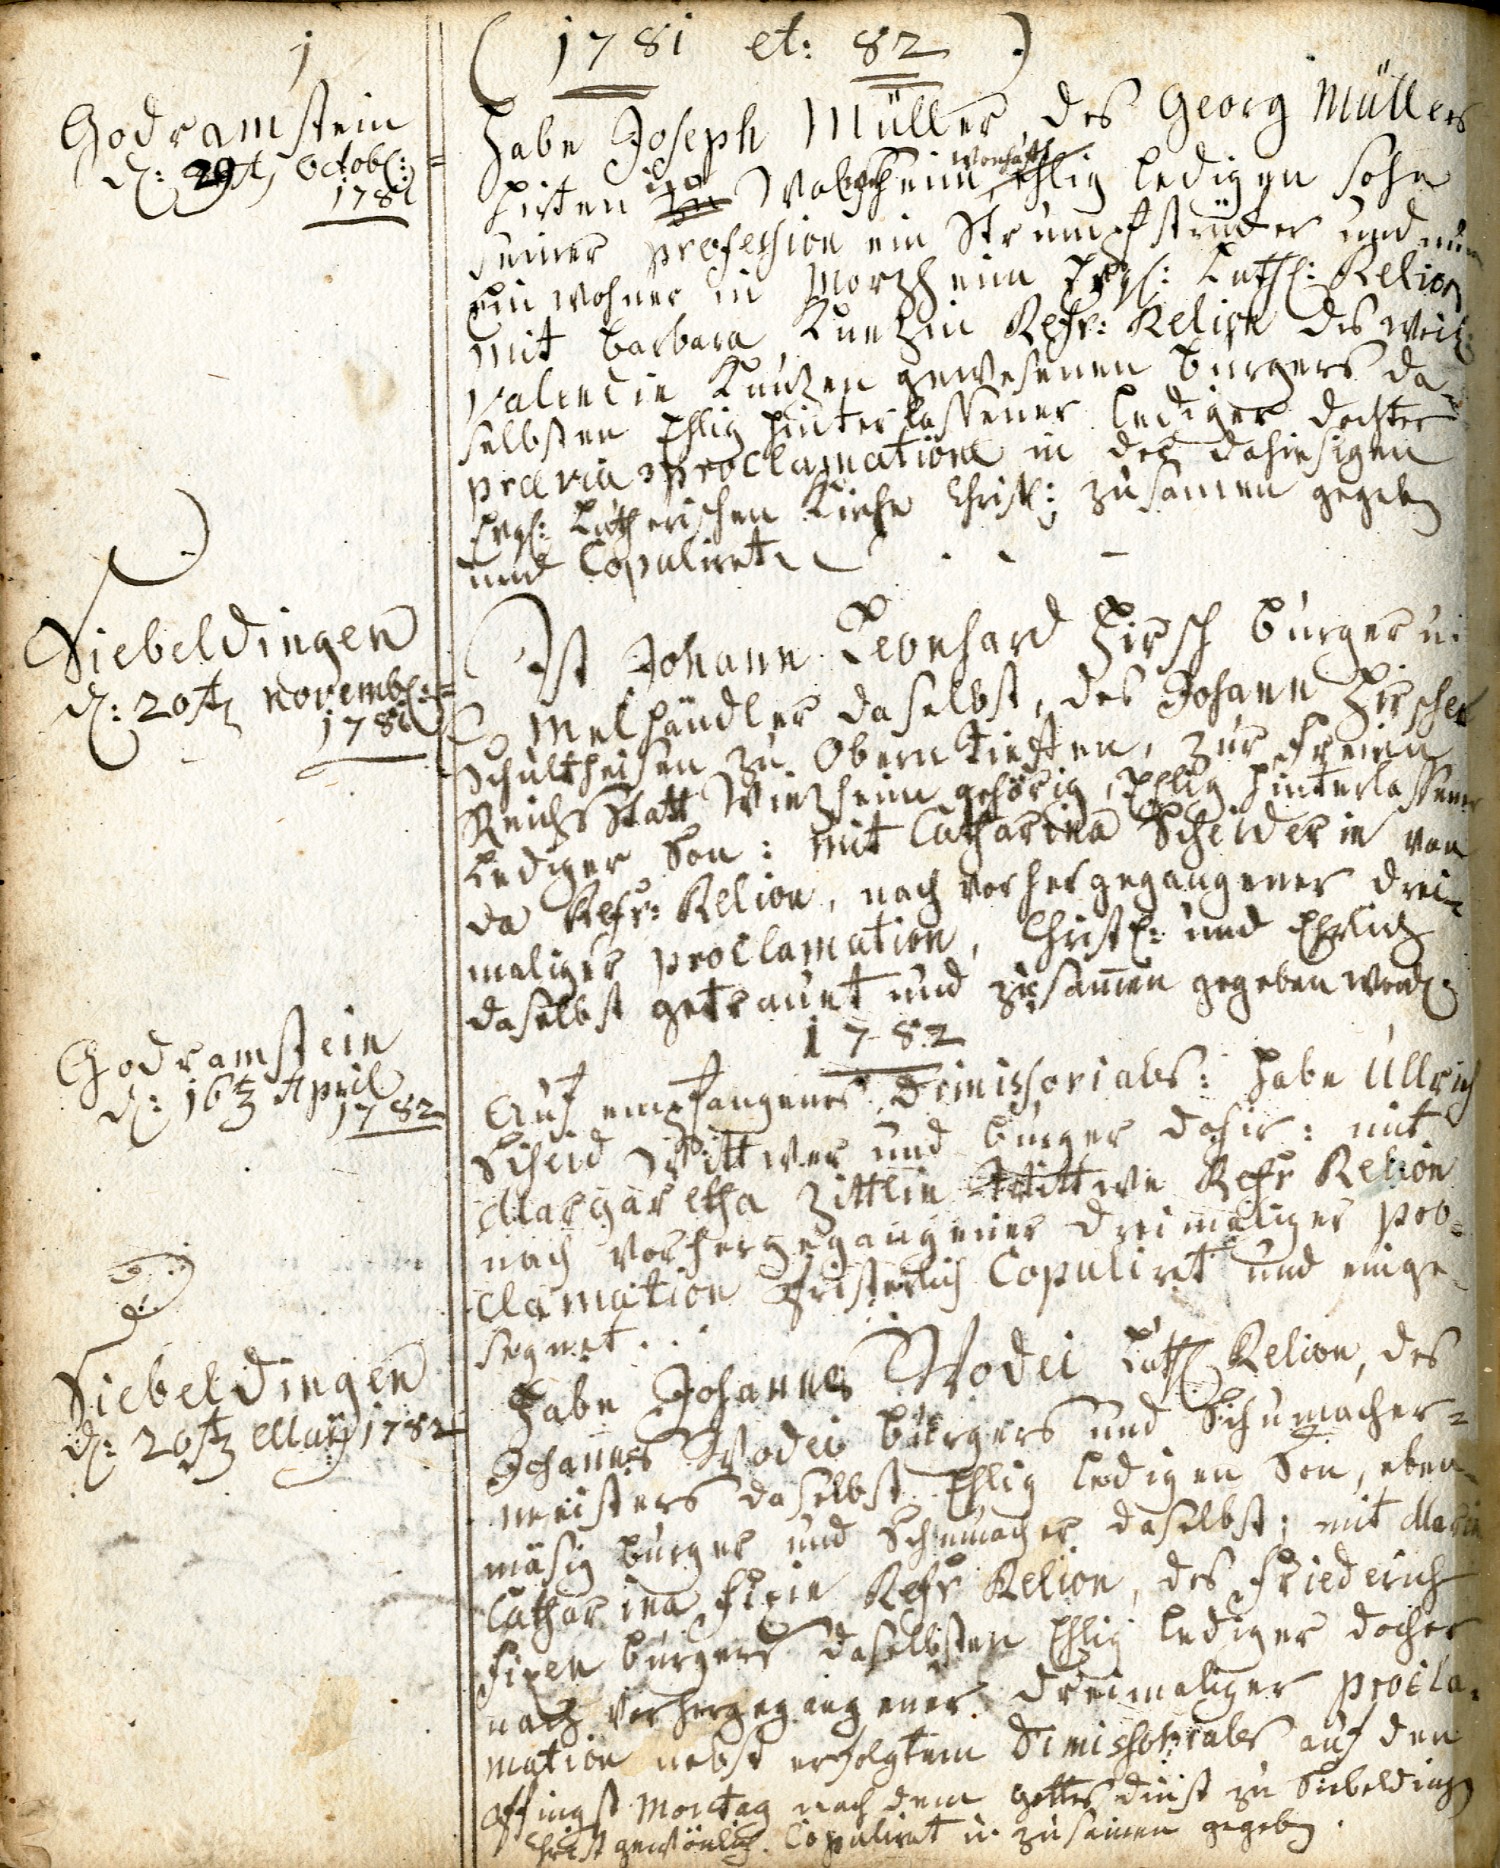 ( 1781 et: 82 )
1
Godramstein
d: 29t Octobr:
1781
Habe Joseph Müller, des Georg Müllers
Hirten in wonhaft ehlig ledigen sohn
seiner profession ein Strumpfstricker und nun
Einwohner in Morzheim Evgl: Luth: Relion
mit barbara Kunzin Refr: Relion des weil:
Valentin Kunzen gewesenen burgers da-
selbsten Ehlig hinterlassener lediger dochter
prævia proclamatione in der dahiesigen
Evgl: Lutherischen Kirche Christl: zusamen gegeben
und Copuliret
Siebeldingen
d: 20st Novembr:
1781
Ist Johann Leonhard Hirsch burger u.
Melhändler daselbst, des Johann Hirschen
Schultheisen zu Obern, zur freien
Reichs Statt gehörig, Ehlig hinterlassener
Lediger Son: mit Catharina Scheiderin von
da Refr: Relion, nach vorhergegangener drei-
maliger proclamation, Christl: und Ehrlich
daselbst getrauet und zusamen gegeben word:
1782
Godramstein
d: 16t April
1782
Auf empfangenes Dimissoriabs: habe Ullrich
Scheid Wittwer und burger dahir: mit
Margaretha Zittlin Wittwe Refr Relion
nach vorhergegangener dreimaliger pro=
clamation Christerlich Copulirt und einge-
segnet...
Siebeldingen
d: 20st May 1782
Habe Johannes Wodei Luth Relion, des
Johannes Wodei bürgers und Schumacher=
meisters daselbst Ehlig ledigen Son, eben-
mäsig burger und Schumacher daselbst; mit Maria
Catharina Fixin Refr Relion, des Friederich
Fixen burgers daselbsten Ehlig lediger docher
nach vorhergegangener dreimaliger procla-
mation nebst erfolgtem Dimissoriabs auf den
Pfingst Montag nach dem gottes dinst zu Siebelding
Christgewönlich Copulirt u. zusamen gegeben.